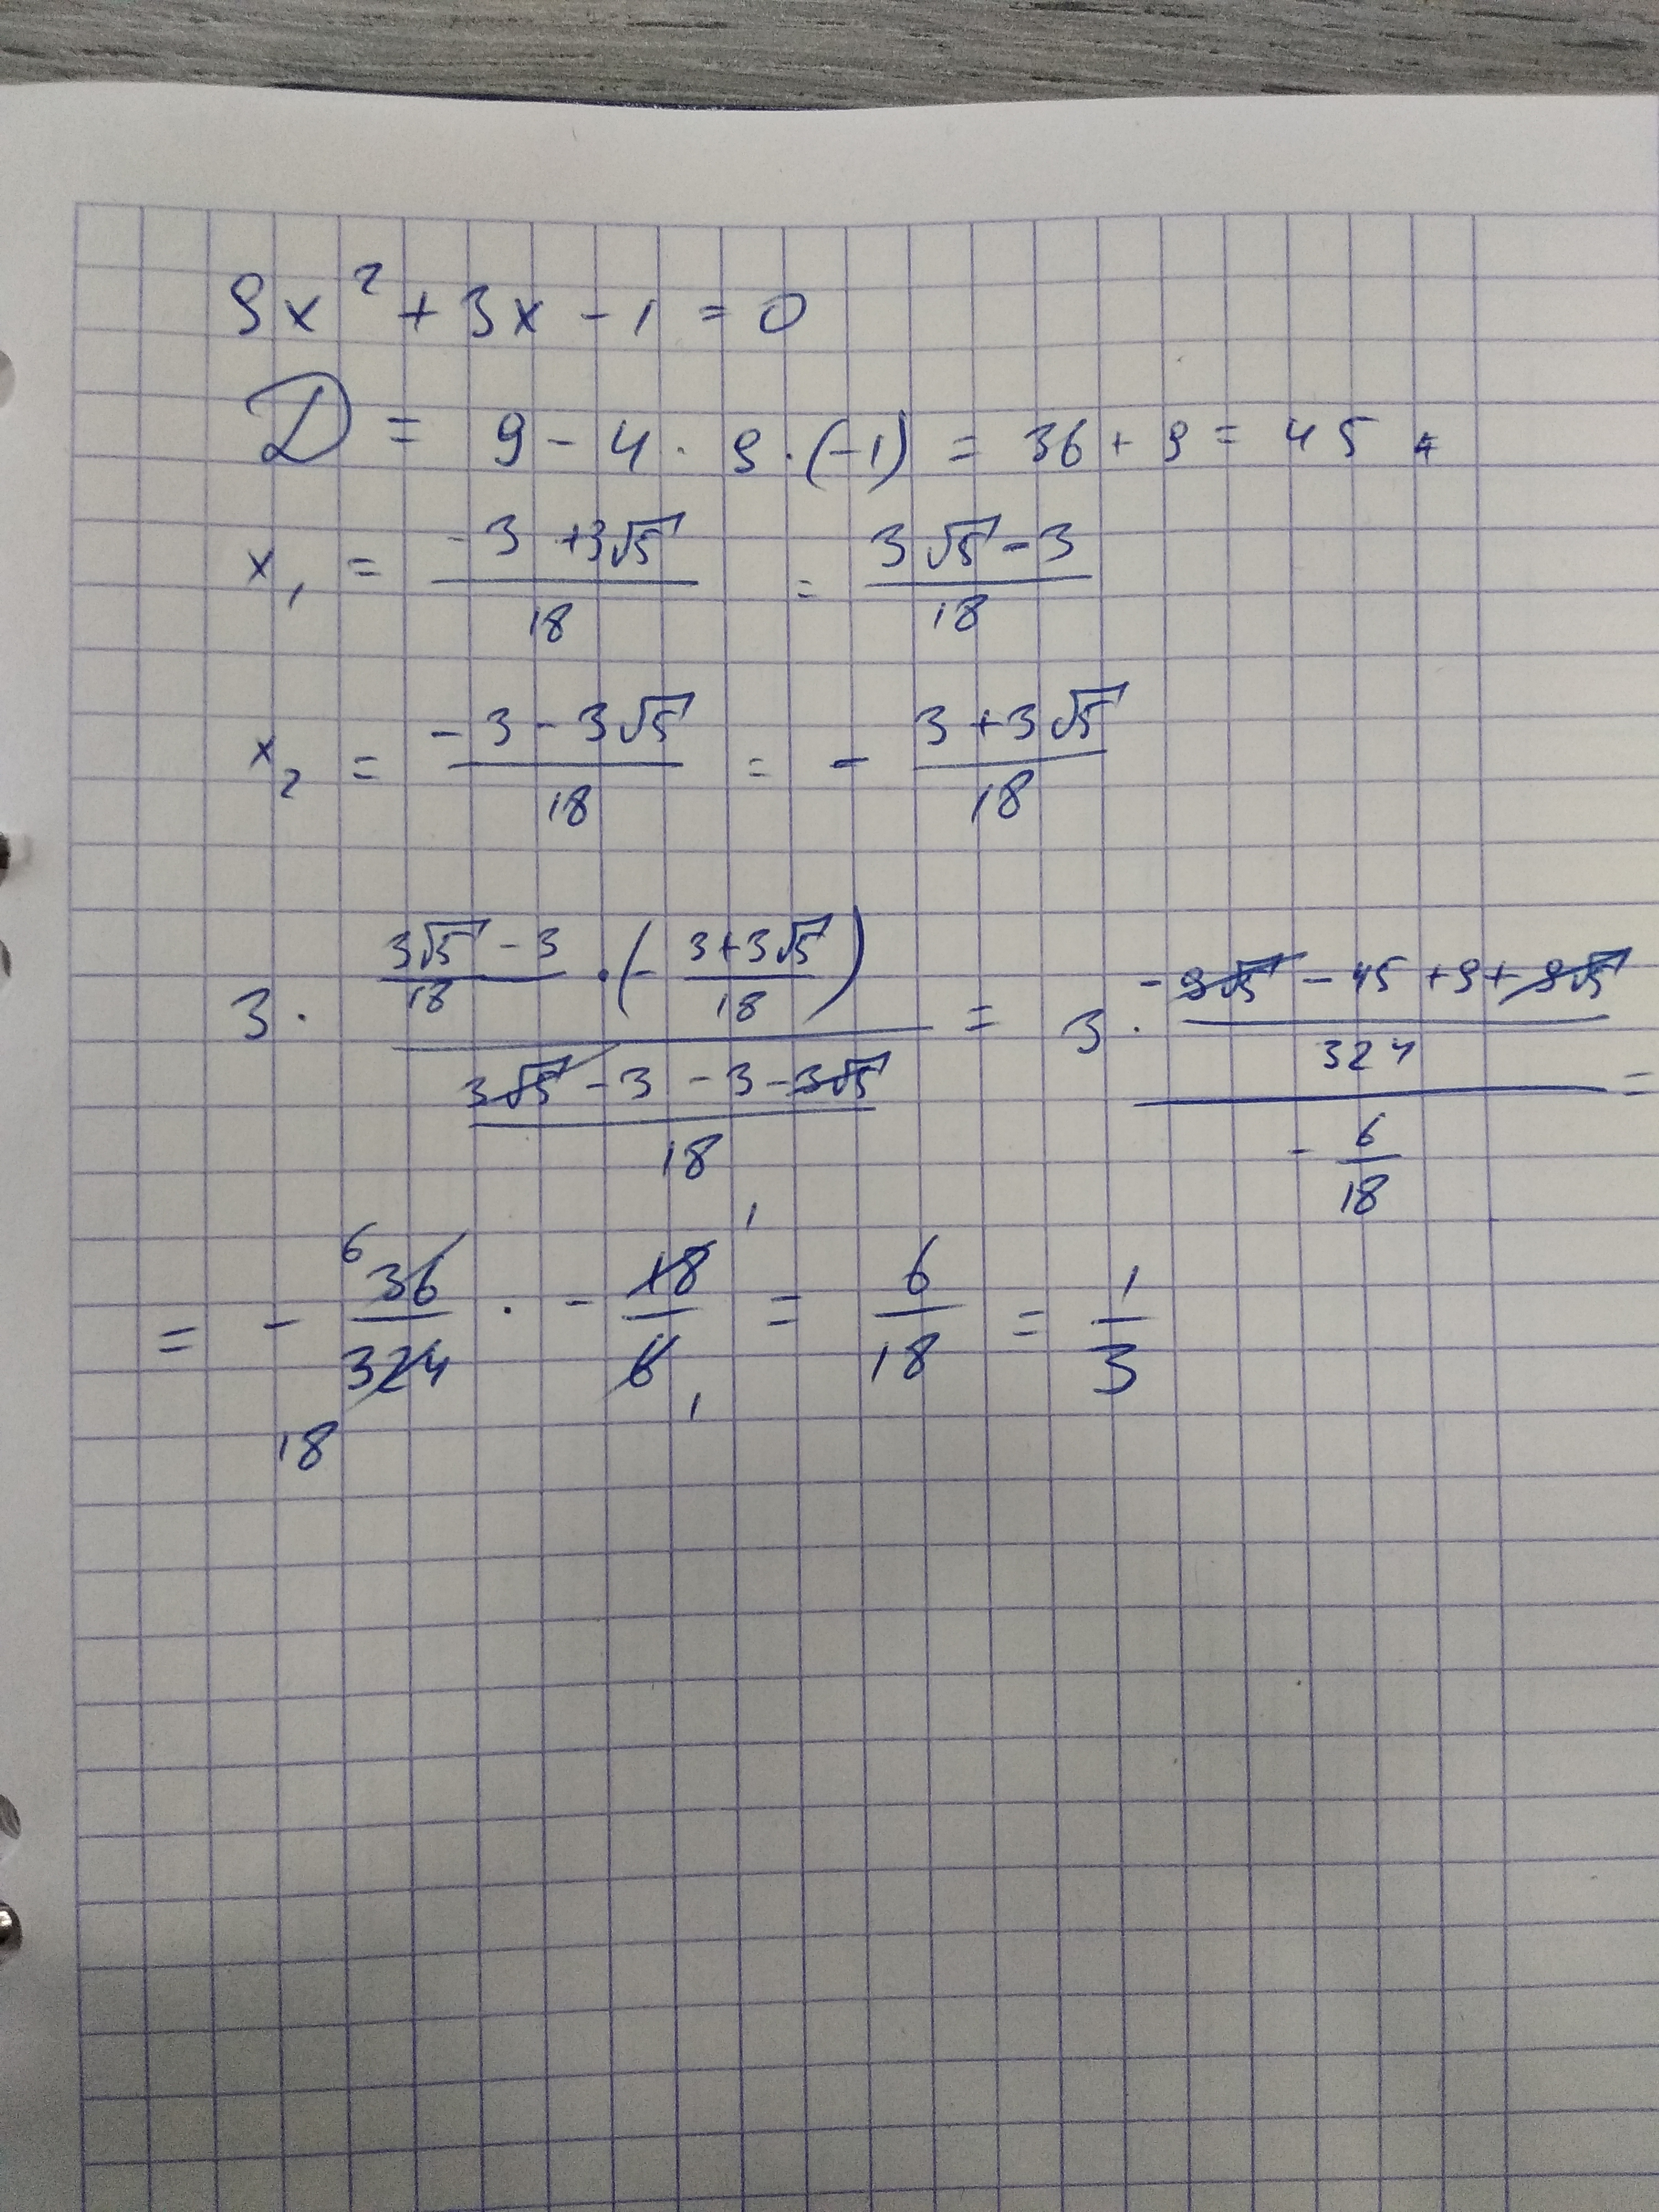 9x² + 3x - 1 = 0
D = 9 - 4 · 9 · (-1) = 36 + 9 = 45
x₁ = (-3 + 3√5)/18 = (3√5 - 3)/18
x₂ = (-3 - 3√5)/18 = - (3 + 3√5)/18
3 · ((3√5 - 3)/18 · (- (3 + 3√5)/18))/((3√5 - 3 - 3 - 3√5)/18) = 3 · ((-9√5 - 45 + 9 + 9√5)/324)/(- 6/18) =
= - 36/324 · - 18/6 = 6/18 = 1/3
6 1
18 1